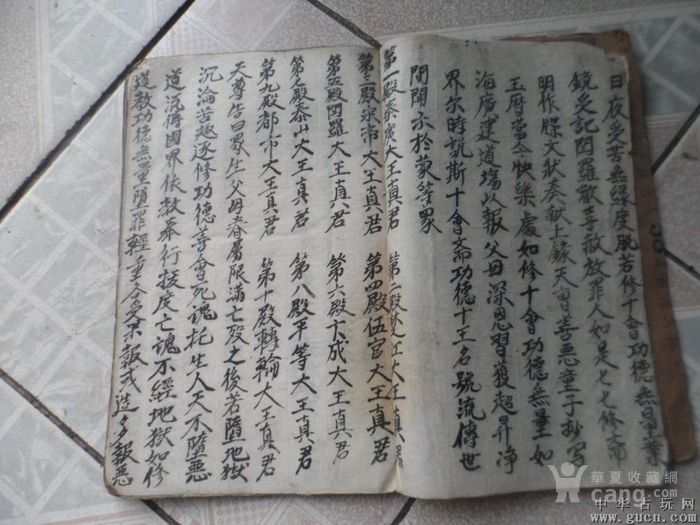 日夜受苦無緣度脫若修十會功德無量業
鏡受記閻羅歡喜放罪人如是七七修齋
明作牒文狀奏献上錄天曹善惡童子抄写
玉曆當令快樂處如修十會功德無量如
海廣建道場以報父母深恩習獲超昇净
界尔時説斯十會斋功德十王名號流傳世
間開示於蒙等眾
第一殿秦廣大王真君 第二殿楚江大王真君
第三殿宋帝大王真君 第四殿伍官大王真君
第五殿閻羅大王真君 第六殿卞成大王真君
第七殿泰山大王真君 第八殿平等大王真君
第九殿都市大王真君 第十殿轉輪大王真君
天尊告曰眾生父母眷屬限滿亡殁之後若墮地獄
沉淪苦趣逐修功德善會死魂托生人天不墮惡
道流傳國界依教奉行援度亡魂不經地獄如修
道教功德無量墮罪輕重各受果報或造多報惡
華夏收藏網
cang.com
中华古玩网
www.gucn.com